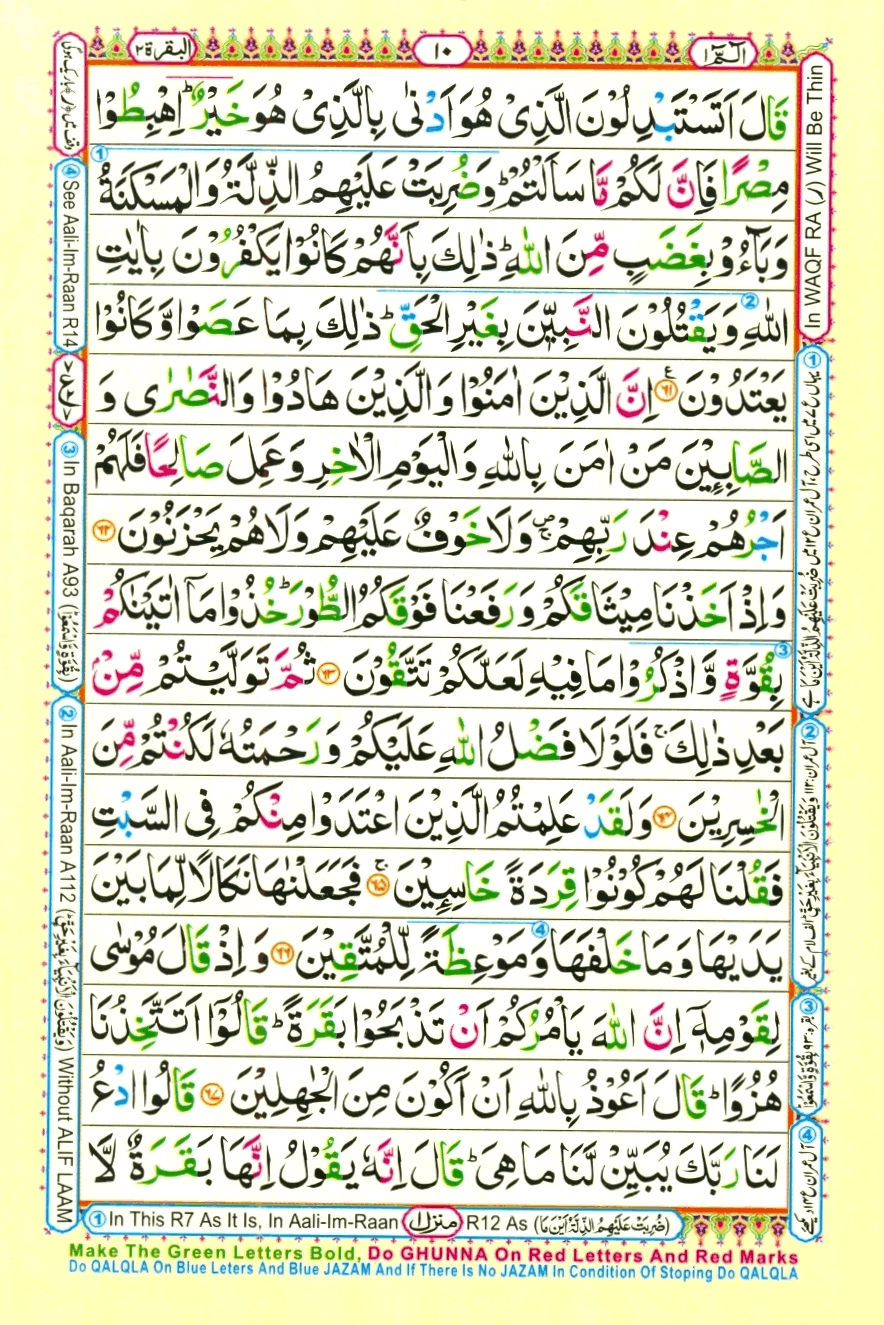 البقرة ٢
١٠
الٓمّٓ ١
قَالَ اَتَسْتَبْدِلُوْنَ الَّذِىْ هُوَ اَدْنٰى بِالَّذِىْ هُوَ خَيْرٌ ؕ اِهْبِطُوْا
مِصْرًا فَاِنَّ لَكُمْ مَّا سَاَلْتُمْ ؕ وَضُرِبَتْ عَلَيْهِمُ الذِّلَّةُ وَالْمَسْكَنَةُ
وَبَآءُوْ بِغَضَبٍ مِّنَ اللّٰهِ ؕ ذٰلِكَ بِاَنَّهُمْ كَانُوْا يَكْفُرُوْنَ بِاٰيٰتِ
اللّٰهِ وَيَقْتُلُوْنَ النَّبِيّٖنَ بِغَيْرِ الْحَقِّ ؕ ذٰلِكَ بِمَا عَصَوْا وَّكَانُوْا
يَعْتَدُوْنَ ﴿٦١﴾ اِنَّ الَّذِيْنَ اٰمَنُوْا وَالَّذِيْنَ هَادُوْا وَالنَّصٰرٰى وَ
الصَّابِـِٕيْنَ مَنْ اٰمَنَ بِاللّٰهِ وَالْيَوْمِ الْاٰخِرِ وَعَمِلَ صَالِحًا فَلَهُمْ
اَجْرُهُمْ عِنْدَ رَبِّهِمْ ۪ۚ وَلَا خَوْفٌ عَلَيْهِمْ وَلَا هُمْ يَحْزَنُوْنَ ﴿٦٢﴾
وَاِذْ اَخَذْنَا مِيْثَاقَكُمْ وَرَفَعْنَا فَوْقَكُمُ الطُّوْرَ ؕ خُذُوْا مَآ اٰتَيْنٰكُمْ
بِقُوَّةٍ وَّاذْكُرُوْا مَا فِيْهِ لَعَلَّكُمْ تَتَّقُوْنَ ﴿٦٣﴾ ثُمَّ تَوَلَّيْتُمْ مِّنْ
بَعْدِ ذٰلِكَ ۚ فَلَوْلَا فَضْلُ اللّٰهِ عَلَيْكُمْ وَرَحْمَتُهٗ لَكُنْتُمْ مِّنَ
الْخٰسِرِيْنَ ﴿٦٤﴾ وَلَقَدْ عَلِمْتُمُ الَّذِيْنَ اعْتَدَوْا مِنْكُمْ فِى السَّبْتِ
فَقُلْنَا لَهُمْ كُوْنُوْا قِرَدَةً خَاسِـِٕيْنَ ﴿٦٥﴾ ۚ فَجَعَلْنٰهَا نَكَالًا لِّمَا بَيْنَ
يَدَيْهَا وَمَا خَلْفَهَا وَمَوْعِظَةً لِّلْمُتَّقِيْنَ ﴿٦٦﴾ وَاِذْ قَالَ مُوْسٰى
لِقَوْمِهٖٓ اِنَّ اللّٰهَ يَاْمُرُكُمْ اَنْ تَذْبَحُوْا بَقَرَةً ؕ قَالُوْٓا اَتَتَّخِذُنَا
هُزُوًا ؕ قَالَ اَعُوْذُ بِاللّٰهِ اَنْ اَكُوْنَ مِنَ الْجٰهِلِيْنَ ﴿٦٧﴾ قَالُوا ادْعُ
لَنَا رَبَّكَ يُبَيِّنْ لَّنَا مَا هِىَ ؕ قَالَ اِنَّهٗ يَقُوْلُ اِنَّهَا بَقَرَةٌ لَّا
In WAQF RA (ر) Will Be Thin
④ See Aali-Im-Raan R14
③ In Baqarah A93 (بِقُوَّةٍ وَّاسْمَعُوْا)
② In Aali-Im-Raan A112 (وَيَقْتُلُوْنَ الْاَنْۢبِيَآءَ بِغَيْرِ حَقٍّ) Without ALIF LAAM
① In This R7 As It Is, In Aali-Im-Raan منزل ١ R12 As (ضُرِبَتْ عَلَيْهِمُ الذِّلَّةُ اَيْنَ مَا)
Make The Green Letters Bold, Do GHUNNA On Red Letters And Red Marks
Do QALQLA On Blue Leters And Blue JAZAM And If There Is No JAZAM In Condition Of Stoping Do QALQLA